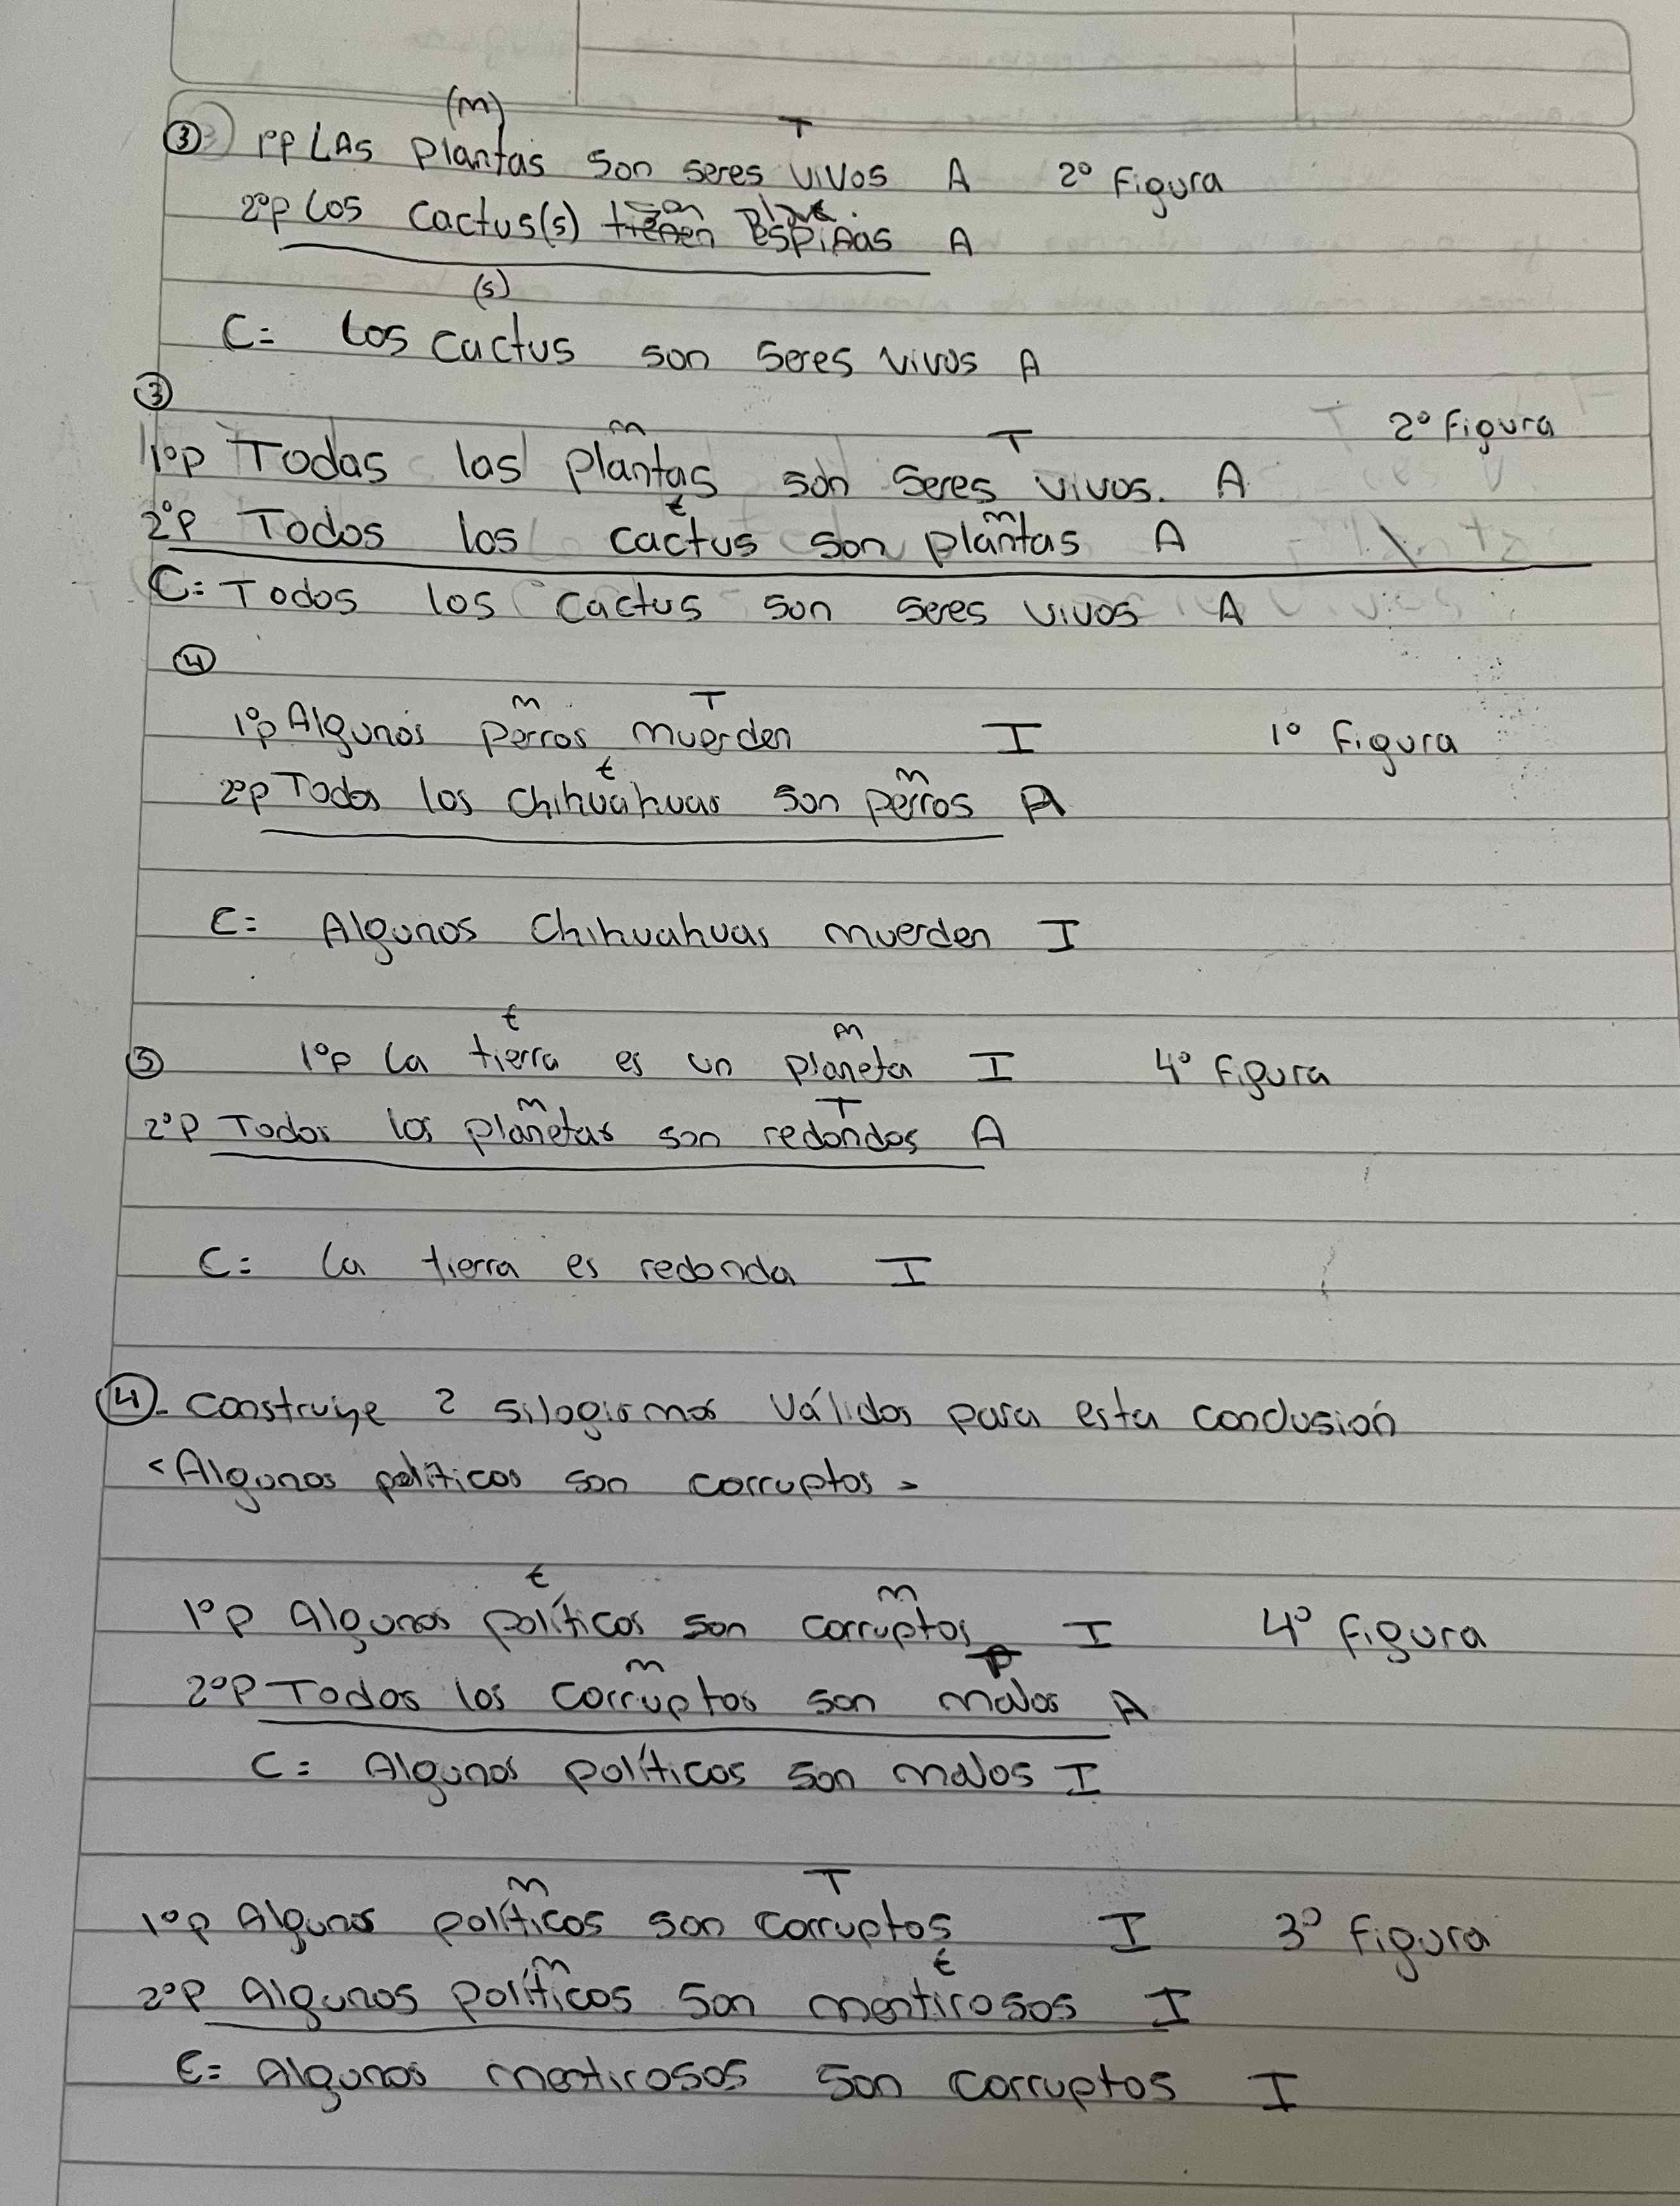 (m) T
③ 1ºp LAs Plantas son seres vivos A 2º Figura
son
2ºp Los cactus(s) tienen espinas A
(s)
C= Los cactus son seres vivos A
③
2º Figura
m T
1ºp Todas las plantas son seres vivos. A
t m
2ºp Todos los cactus son plantas A
C= Todos los cactus son seres vivos A
④
m T
1ºp Algunos perros muerden I 1º Figura
t m
2ºp Todos los chihuahuas son perros A
C= Algunos Chihuahuas muerden I
t m
⑤ 1ºp La tierra es un planeta I 4º Figura
m T
2ºp Todos los planetas son redondos A
C= La tierra es redonda I
④- Construye 2 silogismos válidos para esta conclusión
<Algunos políticos son corruptos>
t m
1ºp Algunos políticos son corruptos I 4º Figura
m
2ºp Todos los corruptos son malos A
C= Algunos políticos son malos I
m T
1ºp Algunos políticos son corruptos I 3º Figura
m t
2ºp Algunos políticos son mentirosos I
C= Algunos mentirosos son corruptos I